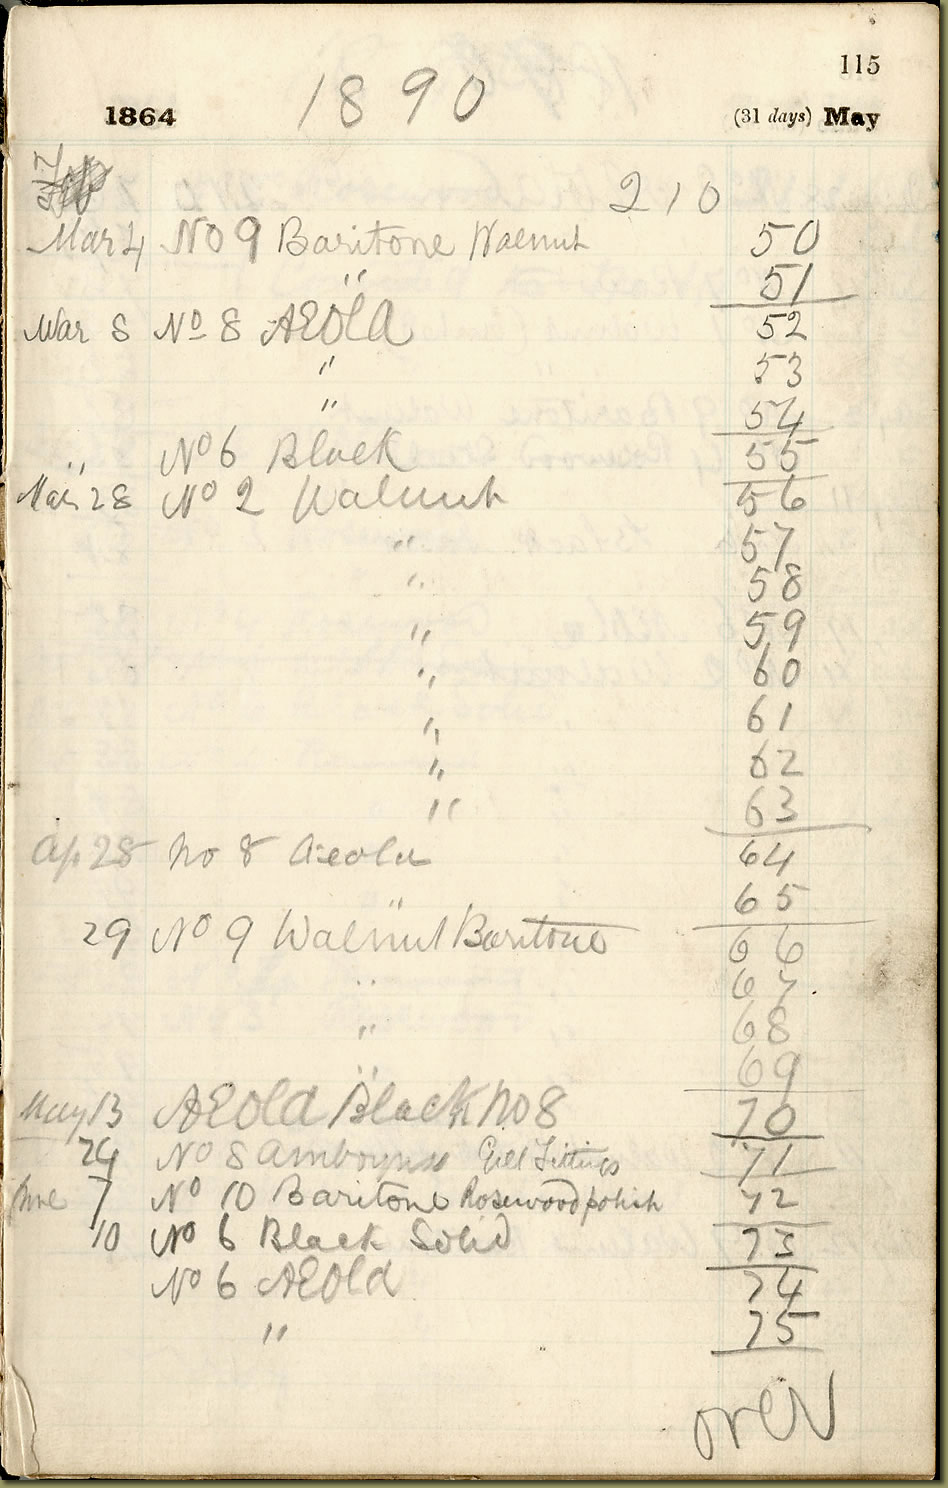 115
1864 1890 (31 days) May
210
Mar 4 No 9 Baritone Walnut 50
" 51
Mar 8 No 8 AEola 52
" 53
" 54
" No 6 Black 55
Mar 28 No 2 Walnut 56
" 57
" 58
" 59
" 60
" 61
" 62
" 63
Ap 28 No 8 Aeola 64
" 65
29 No 9 Walnut Baritone 66
" 67
" 68
" 69
May 13 AEola Black No 8 70
24 No 8 Amboyna Gilt Fittings 71
June 7 No 10 Baritone Rosewood polish 72
10 No 6 Black Solid 73
No 6 AEola 74
" 75
over